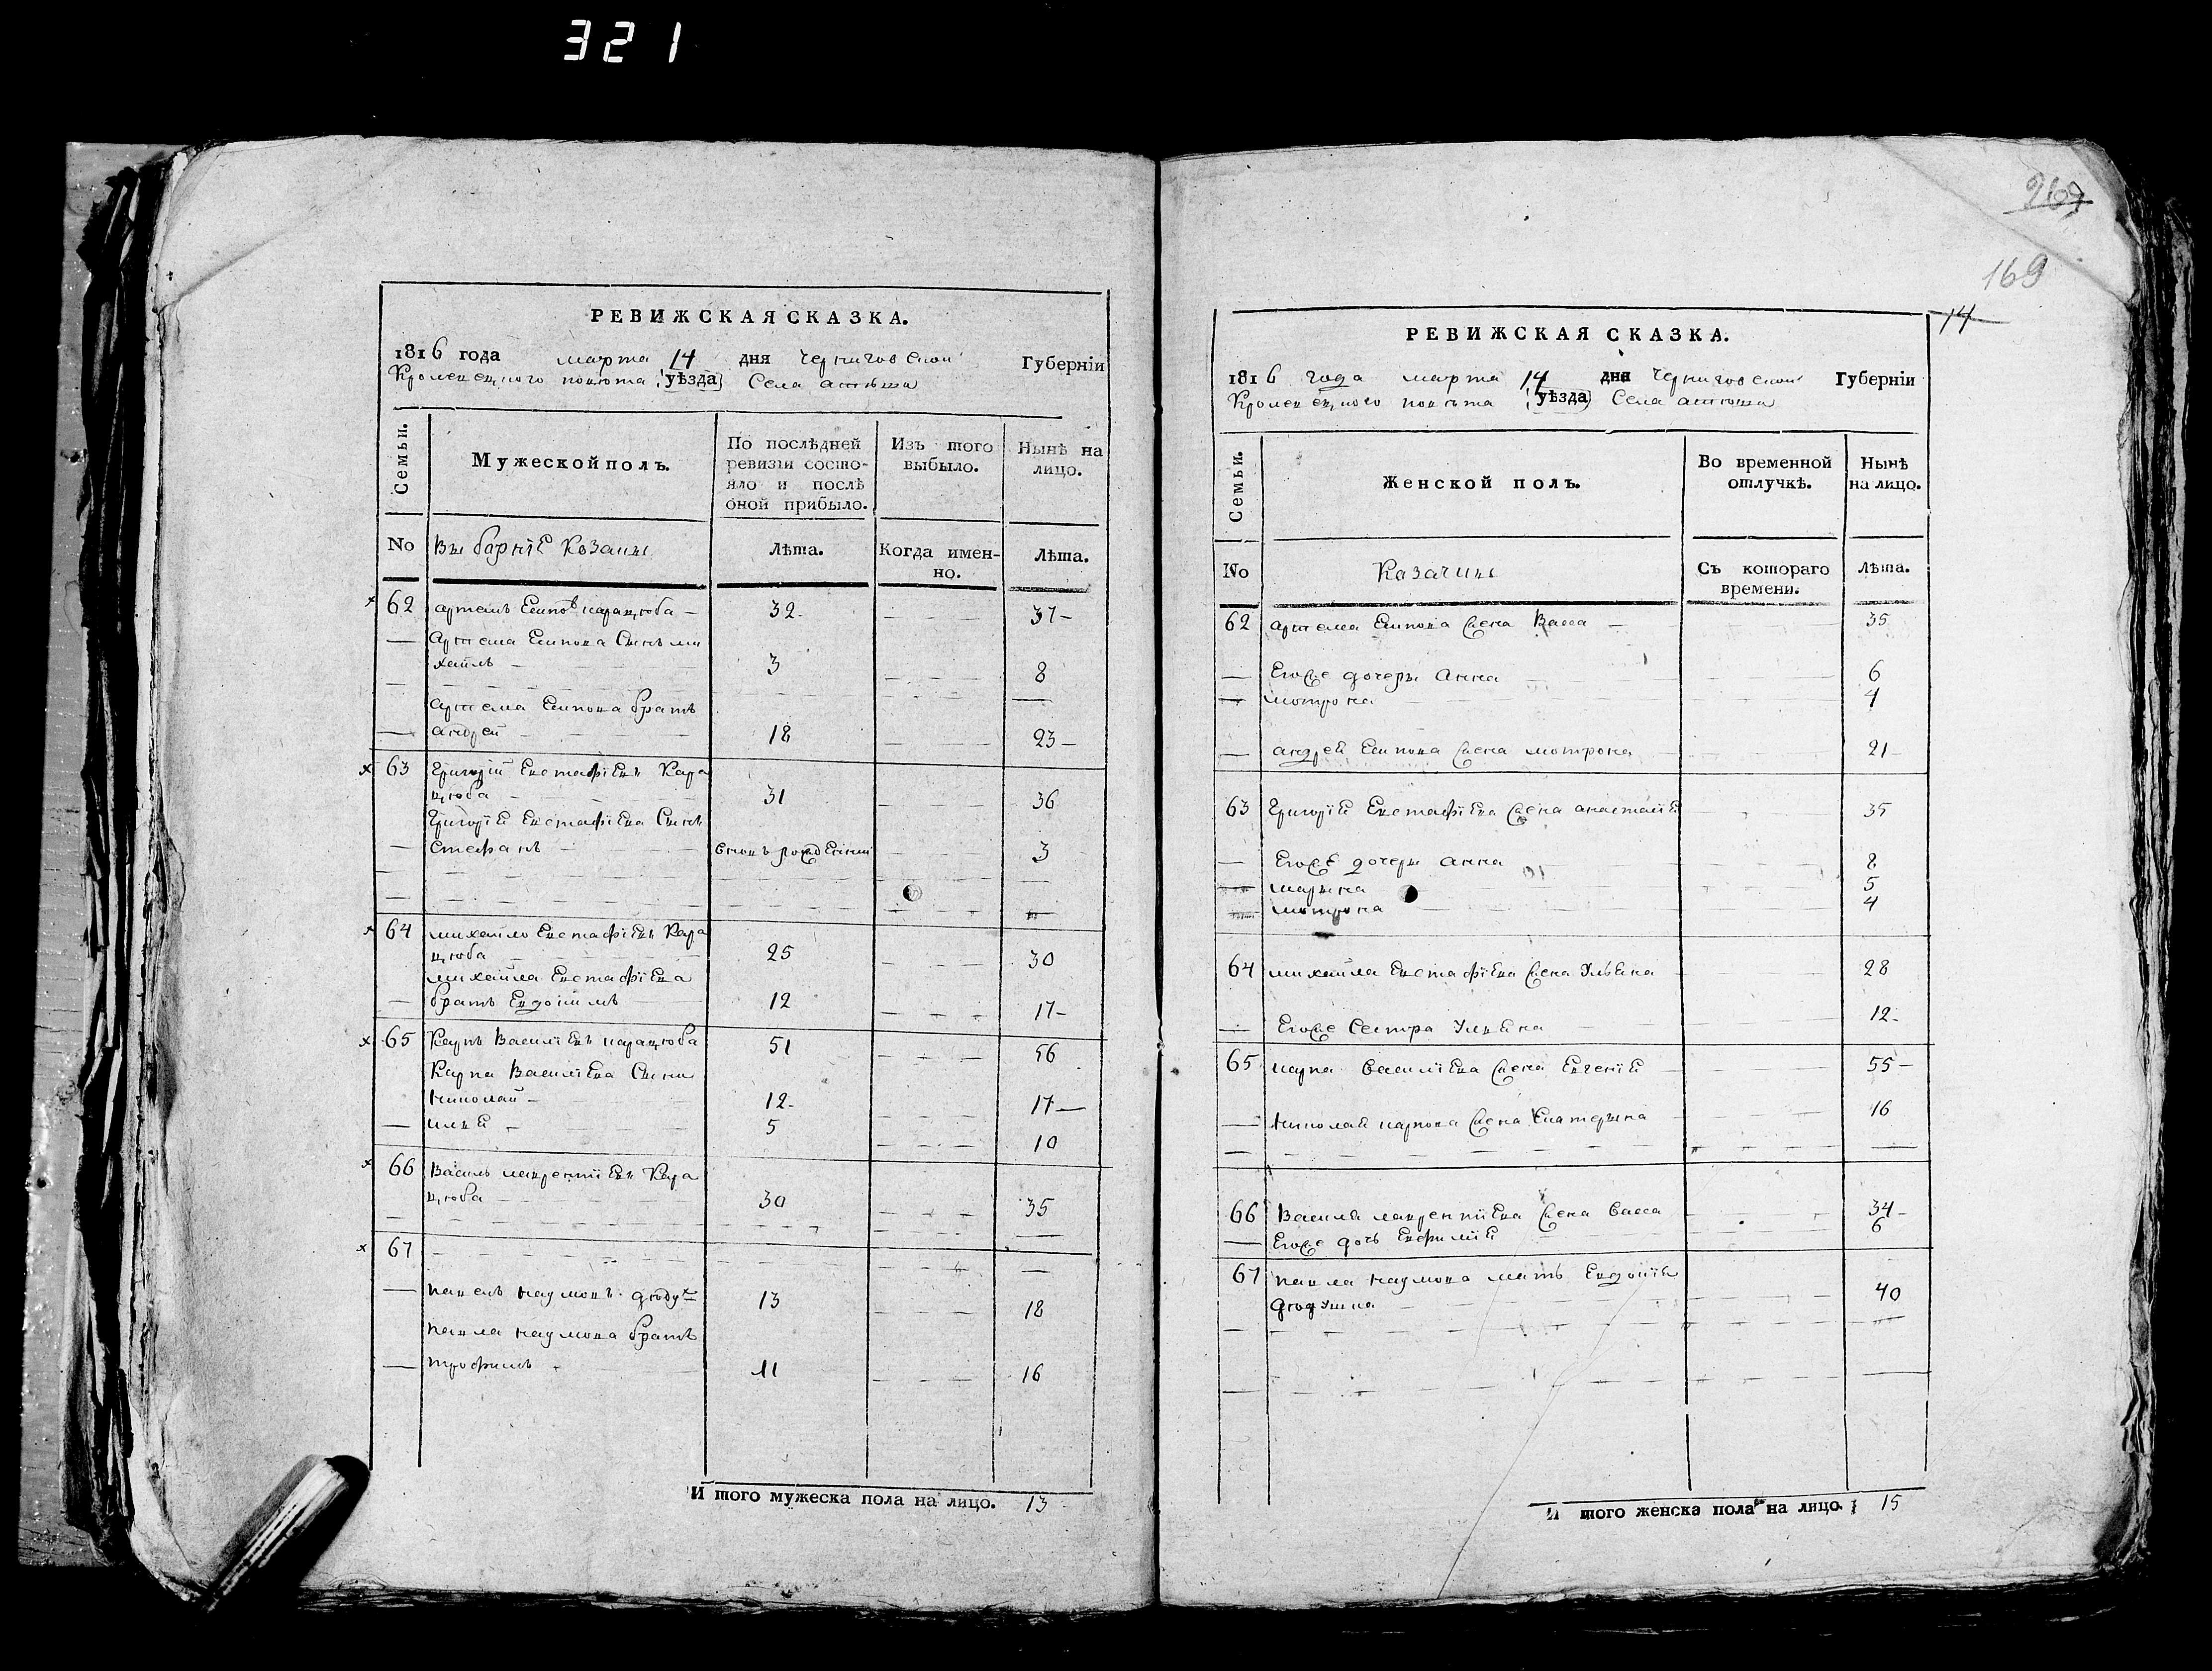 321
РЕВИЖСКАЯ СКАЗКА.
1816 года марта 14 дня Черниговской Губерніи
Кролевецкого повѣта (уѣзда) Села
Семьи.
Мужеской полъ.
По послѣдней ревизіи состо-
яло и послѣ оной прибыло.
Изъ того выбыло.
Нынѣ на лицо.
No
Выборніе Козаки
Лѣта.
Когда имен-
но.
Лѣта.
62 Артемъ Карацюба — 32 - 37 -
— Артема Сынъ ми
хайлъ — 3 8
Артема братъ
— андрей — 18 23 -
63 Григорій Евстафіевъ Кара
цюба — 31 36
Григорія Евстафіева Сынъ
— стефанъ — вновь рожденний 3
64 михайло Евстафіевъ Кара
цюба — 25 30
михайла Евстафіева
— братъ Евдокимъ 12 17 -
65 Карпъ Василіевъ карацюба 51 56
Карпа Василіева Сыни
николай — 12 - 17 —
— илія — 5 10
66 Василь лаврентіевъ Кара
цюба — 30 35
67
— павелъ наумовъ 13 18
павла наумова братъ
— трофимъ — 11 16
И того мужеска пола на лицо. 13
267
169
14
РЕВИЖСКАЯ СКАЗКА.
1816 года марта 14 дня Черниговской Губерніи
Кролевецкого повѣта (уѣзда) Села
Семьи.
Женской полъ.
Во временной
отлучкѣ.
Нынѣ
на лицо.
No
Козачки
Съ котораго
времени.
Лѣта.
62 Артема жена Васса — 35
— Егоже дочери Анна 6
— мотрона 4
— андрея жена мотрона 21 -
63 Григорія Евстафіева жена анастасія 35
— Егоже дочери анна 8
— марина 5
— мотрона 4
64 михайла Евстафіева жена Ульяна 28
— Егоже Сестра Ульяна 12 -
65 карпа василіева жена Евгенія 55 -
— николая карпова жена Екатерина 16
66 Василя лаврентіева жена васса 34 -
— Егоже дочь Евфимія 6
67 павла наумова мать Евдокія 40
И того женска пола на лицо. 15